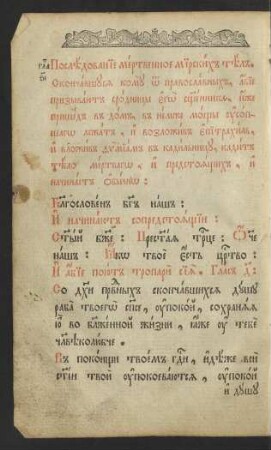 Послѣдованїе ме́ртвенное мїрски́хъ тѣ́лъ.
Скончавшꙋсѧ комꙋ̀ ѿ православныхъ, а҆́бїе
призываютъ сродницы є҆гѡ̀ сщ҃енника, и҆́же
пришедъ въ домъ, въ немже мощи оу҆соп-
шагѡ лежатъ, и҆ возложивъ є҆пїтрахиль,
и҆ вложивъ ѳѷмїамъ въ кадильницꙋ, кадитъ
тѣло мертвагѡ, и҆ предстоѧщихъ, и҆
начинаетъ ѡ҆бычнѡ:
Благословенъ бг҃ъ нашъ:
И҆ начинаютъ сопредстоѧщїи:
Ст҃ый бж҃е: Прест҃аѧ трⷪ҇це: Ѻ҆́че
нашъ: Ꙗ҆́кѡ твоѐ є҆́сть црⷭ҇тво:
И҆ а҆́бїе поютъ тропари сїѧ̑. Гласъ д҃:
Со дх҃и првⷣныхъ скончавшихсѧ дꙋшꙋ
раба твоегѡ̀ сп҃се, оу҆покой, сохранѧѧ
ю҆̀ во блаженной жизни, ꙗ҆́же оу҆ тебѐ
чл҃вѣколюбче.
Въ покоищи твоемъ гдⷭ҇и, и҆дѣ́же вси
ст҃їи твоѝ оу҆покоеваютсѧ, оу҆покой
и҆ дꙋшꙋ